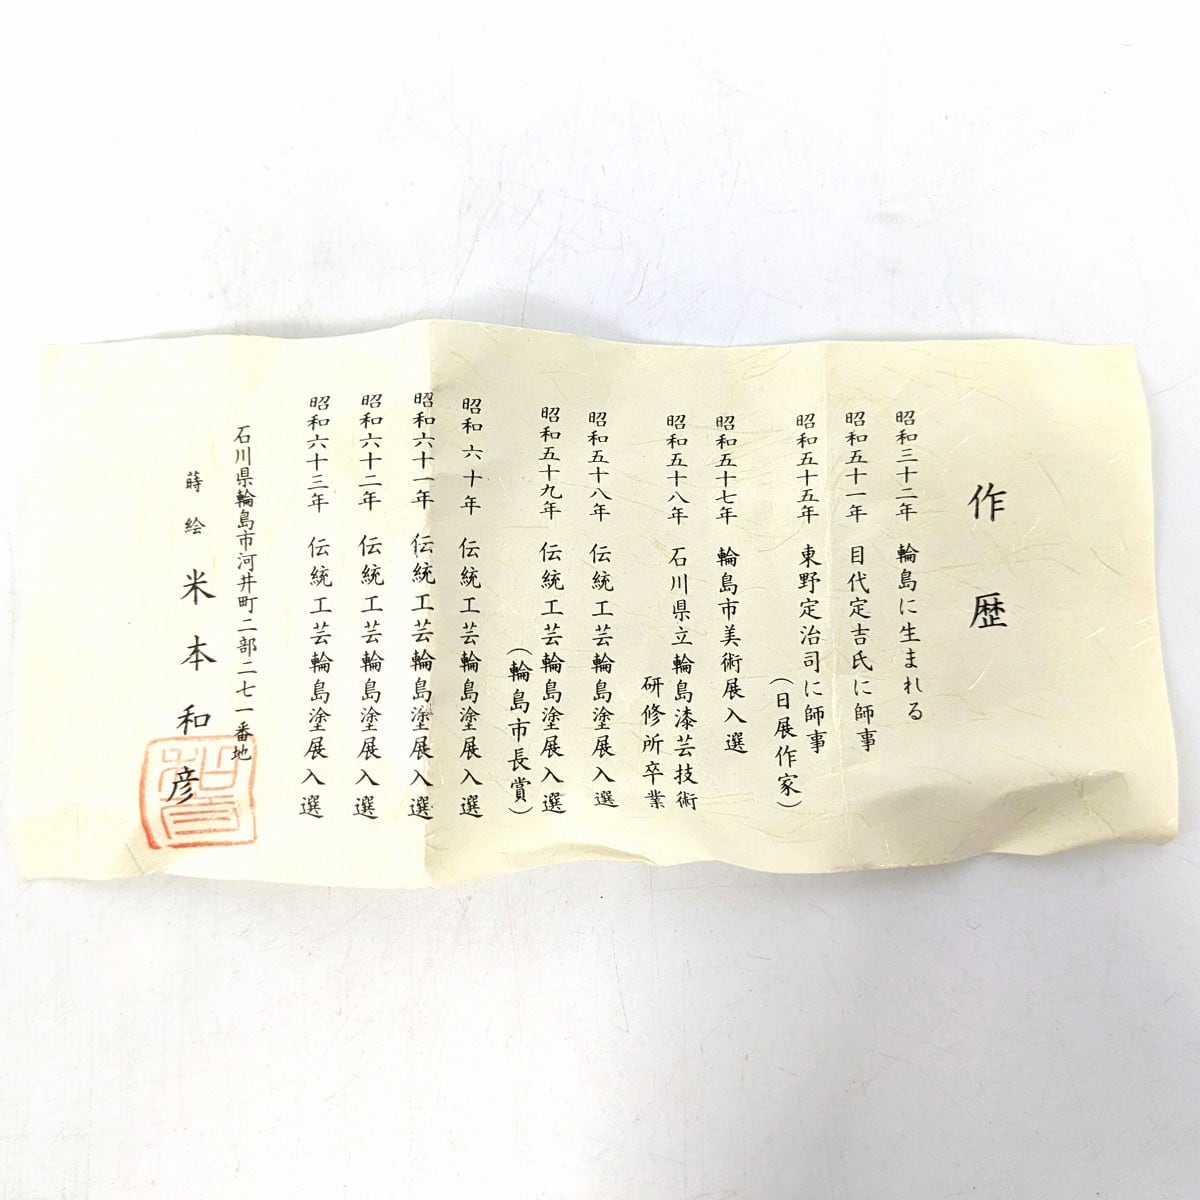 作歴
昭和三十二年 輪島に生まれる
昭和五十一年 目代定吉氏に師事
昭和五十五年 東野定治司に師事
(日展作家)
昭和五十七年 輪島市美術展入選
昭和五十八年 石川県立輪島漆芸技術
研修所卒業
昭和五十八年 伝統工芸輪島塗展入選
昭和五十九年 伝統工芸輪島塗展入選
(輪島市長賞)
昭和六十年 伝統工芸輪島塗展入選
昭和六十一年 伝統工芸輪島塗展入選
昭和六十二年 伝統工芸輪島塗展入選
昭和六十三年 伝統工芸輪島塗展入選
石川県輪島市河井町二部二七一番地
蒔絵 米本和彦